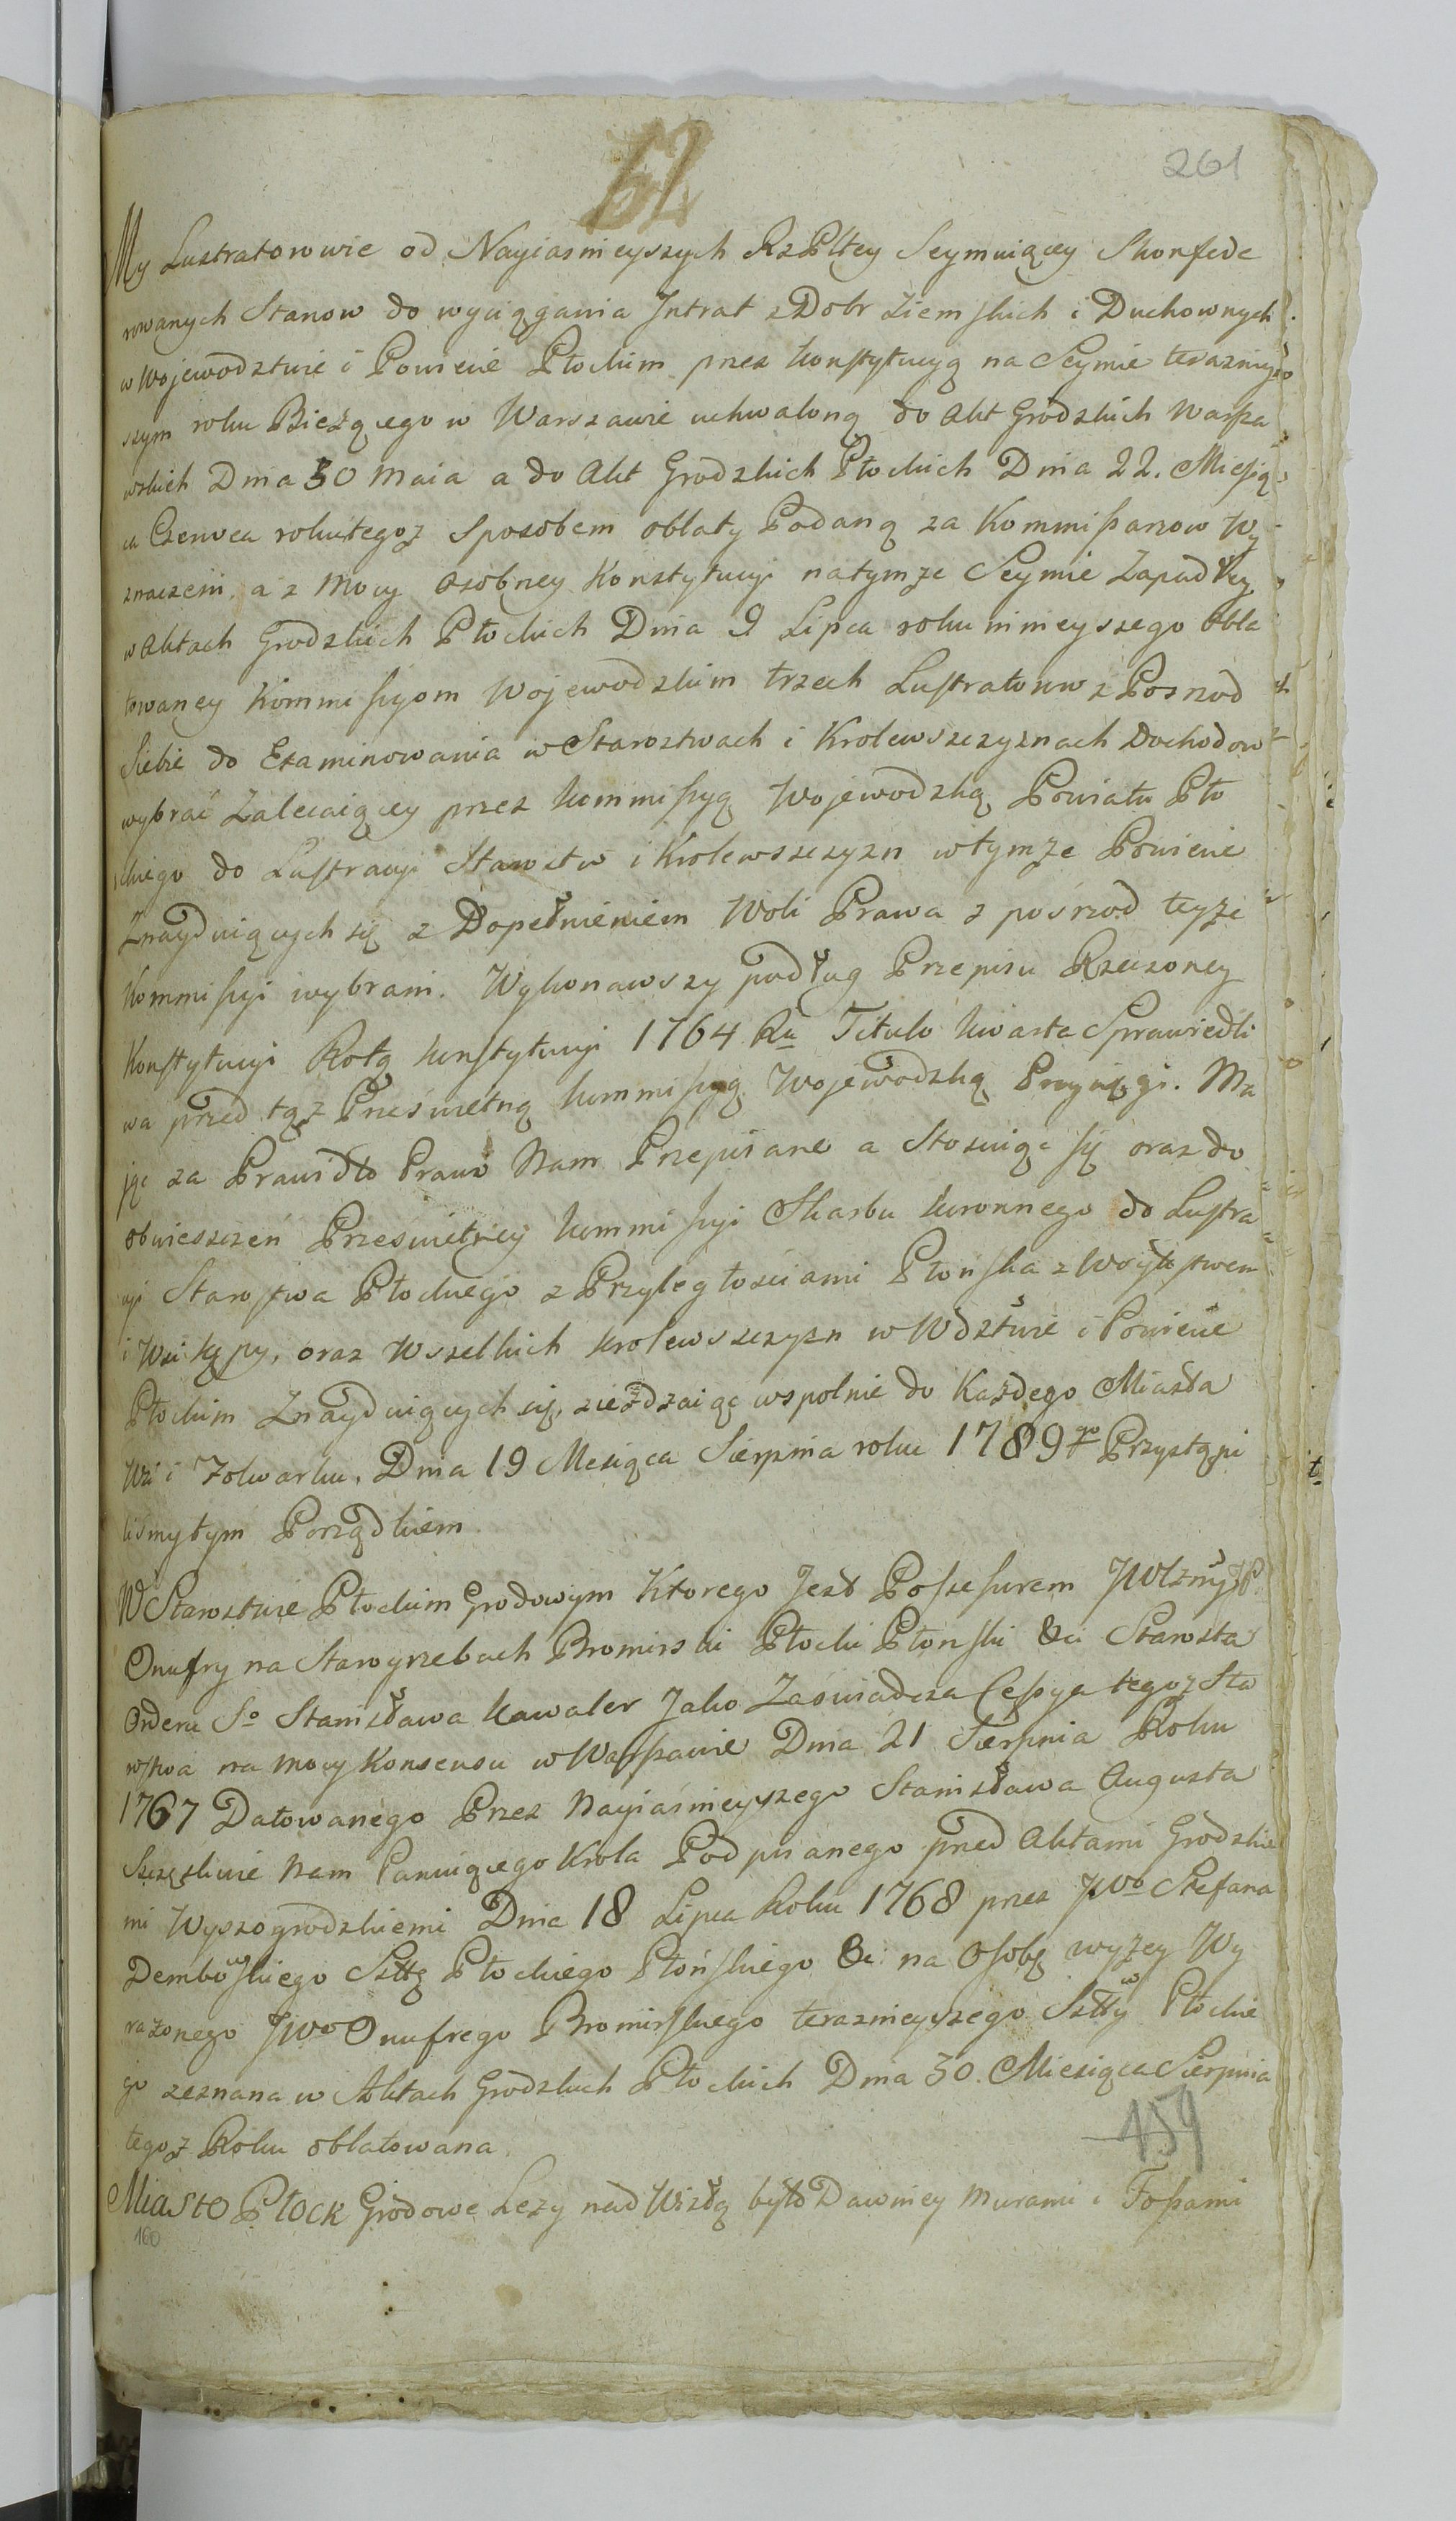 62
261
My Lustratorowie od Nayiasnieyszych RzPltey Seymuiącey Skonfede
rowanych Stanow do wyciągania Jntrat z Dobr Ziemskich i Duchownych
w Wojewodztwie i Powiecie Płockim przez konstytucyą na Seymie terazniey
szym roku Bieżącego w Warszawie uchwaloną do Akt Grodzkich Warsza
wskich Dnia 30 Maia a do Akt Grodzkich Płockich Dnia 22. Miesią
ca Czerwca roku tegoż Sposobem oblaty Podaną za Kommissarzow Wy
znaczeni, a z Mocy Osobney Konstytucyi na tymże Seymie Zapadłey
w Aktach Grodzkich Płockich Dnia 9 Lipca roku ninieyszego obla
towaney Kommissyom Wojewodzkim trzech Lustratorow z Posrzod
Siebie do Examinowania w Starostwach i Krolewszczyznach Dochodow
wybrać Zalecaiącey przez kommissyą Wojewodzką Powiatu Pło
ckiego do Lustracyi Starostw i Krolewszczyzn w tymże Powiecie
Znayduiących się z Dopełnieniem Woli Prawa z pośrzod teyże
Kommissyi wybrani. Wykonawszy podług Przepisu Rzeczoney
Konstytucyi Rotą konstytucyi 1764 Ru Titulo kwarta Sprawiedli
wa przed tąż Prześwietną kommissyą Wojewodzką Przysięgi. Ma
jąc za Prawidło Prawo Nam Przepisane a Stosuiąc się oraz do
obwieszczeń Prześwietney kommissyi Skarbu koronnego do Lustra
cyi Starostwa Płockiego z Przyległościami Płońska z Woytostwem
i Wsi Kępy, oraz Wszelkich krolewszczyzn w Wdztwie i Powiecie
Płockim Znayduiących się, zieżdzaiąc wspolnie do Każdego Miasta
Wsi i Folwarku, Dnia 19 Mesiąca Sierpnia roku 1789go Przystąpi
liśmy tym Porządkiem
W Starostwie Płockim Grodowym Ktorego Jest Possessorem JWlżny JP.
Onufry na Starogrzebach Bromirski Płocki Płonski &c Starosta
Orderu So Stanisława Kawaler Jako Zaświadcza Cessya tegoż Sta
rostwa na mocy Konsensu w Warszawie Dnia 21 Sierpnia Roku
1767 Datowanego Przez Nayiaśnieyszego Stanisława Augusta
Szczęśliwie Nam Panuiącego Krola Podpisanego przed Aktami Grodzkie
mi Wyszogrodzkiemi Dnia 18 Lipca Roku 1768 przez JWo Stefana
Dembowskiego Sttę Płockiego Płońskiego &c na Osobę wyżey Wy
rażonego JWo Onufrego Bromirskiego teraznieyszego Stty Płockie
go zeznana w Aktach Grodzkich Płockich Dnia 30. Miesiąca Sierpnia
tegoż Roku oblatowana
159
Miasto Płock Grodowe Leży nad Wisłą było Dawniey Murami i Fossami
160